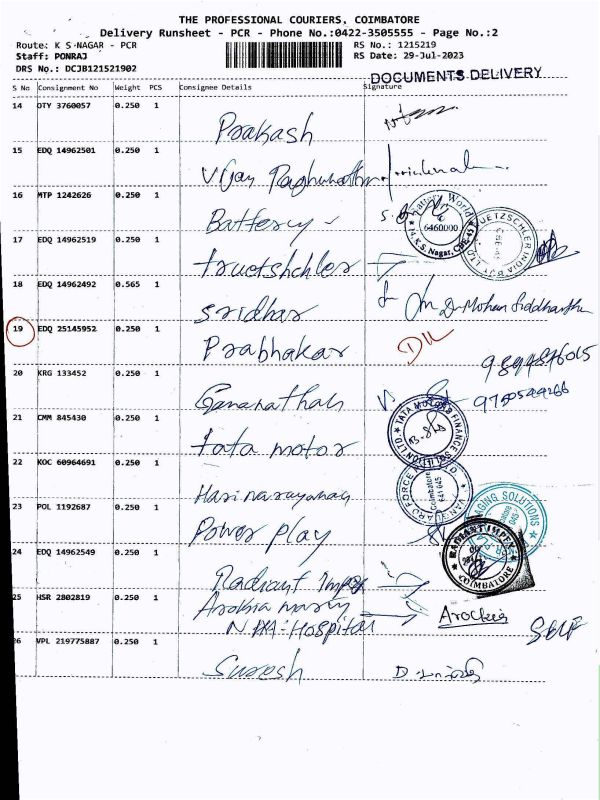 THE PROFESSIONAL COURIERS, COIMBATORE
Delivery Runsheet - PCR - Phone No.:0422-3505555 - Page No.:2
Route: K S NAGAR - PCR RS No.: 1215219
Staff: PONRAJ RS Date: 29-Jul-2023
DRS No.: DCJB121521902
DOCUMENTS DELIVERY
S No Consignment No Weight PCS Consignee Details Signature
14 OTY 3760057 0.250 1
Prakash
15 EDQ 14962501 0.250 1
Vijay Raghunathan
16 MTP 1242626 0.250 1
Battery
6460000
14 K.S. Nagar, CBE-43
17 EDQ 14962519 0.250 1
truetshchler
18 EDQ 14962492 0.565 1
sridhar
Dr Mohan Siddharthan
19 EDQ 25145952 0.250 1
Prabhakar
DIL
20 KRG 133452 0.250 1
Gananathan
21 CMM 845430 0.250 1
tata motor
TATA MOTORS FINANCE SOLUTION LTD.
22 KOC 60964691 0.250 1
Harinarayanan
Coimbatore
641 045
23 POL 1192687 0.250 1
Power play
GING SOLUTIONS
24 EDQ 14962549 0.250 1
Radiant Impex
RADIANT IMPEX
COIMBATORE
25 HSR 2802819 0.250 1
Arokia mary
N.HA. Hospital
Arockia
Self
26 VPL 219775887 0.250 1
Suresh